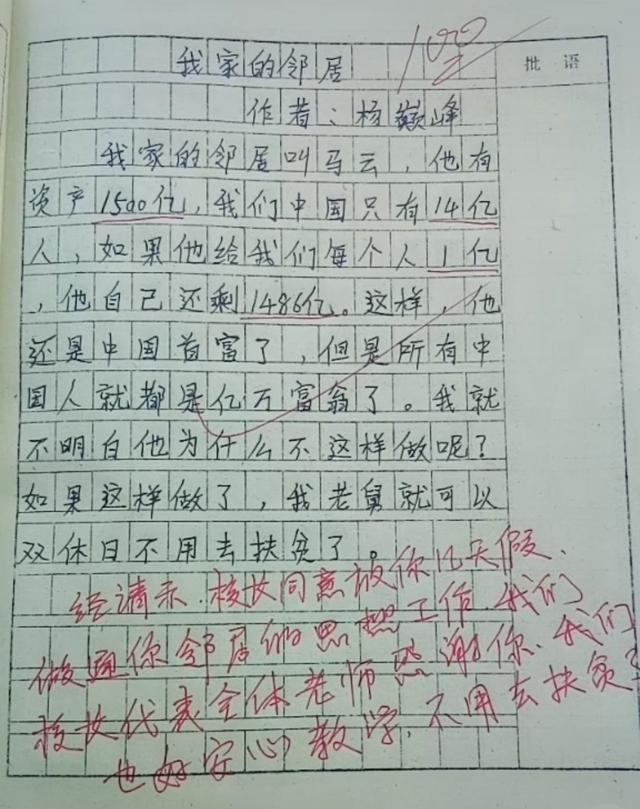 100
批语
我家的邻居
作者：杨巅峰
我家的邻居叫马云，他有
资产1500亿，我们中国只有14亿
人，如果他给我们每个人1亿
，他自己还剩1486亿。这样，他
还是中国首富了，但是所有中
国人就都是亿万富翁了。我就
不明白他为什么不这样做呢？
如果这样做了，我老舅就可以
双休日不用去扶贫了。
经请示.校女同意放你几天假、
做通你邻居的思想工作.我们
校女代表全体老师感谢你.我们
也好安心教学，不用去扶贫了